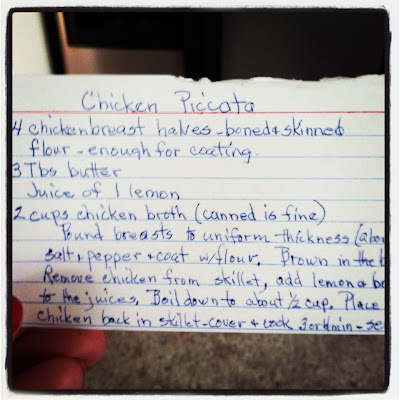 Chicken Piccata
4 chicken breast halves - boned & skinned
flour - enough for coating.
3 Tbs butter
Juice of 1 lemon
2 cups chicken broth (canned is fine)
Pound breasts to uniform thickness
salt + pepper + coat w/flour. Brown in the
Remove chicken from skillet, add lemon &
to the juices, Boil down to about ½ cup. Place
chicken back in skillet - cover & cook 3 or